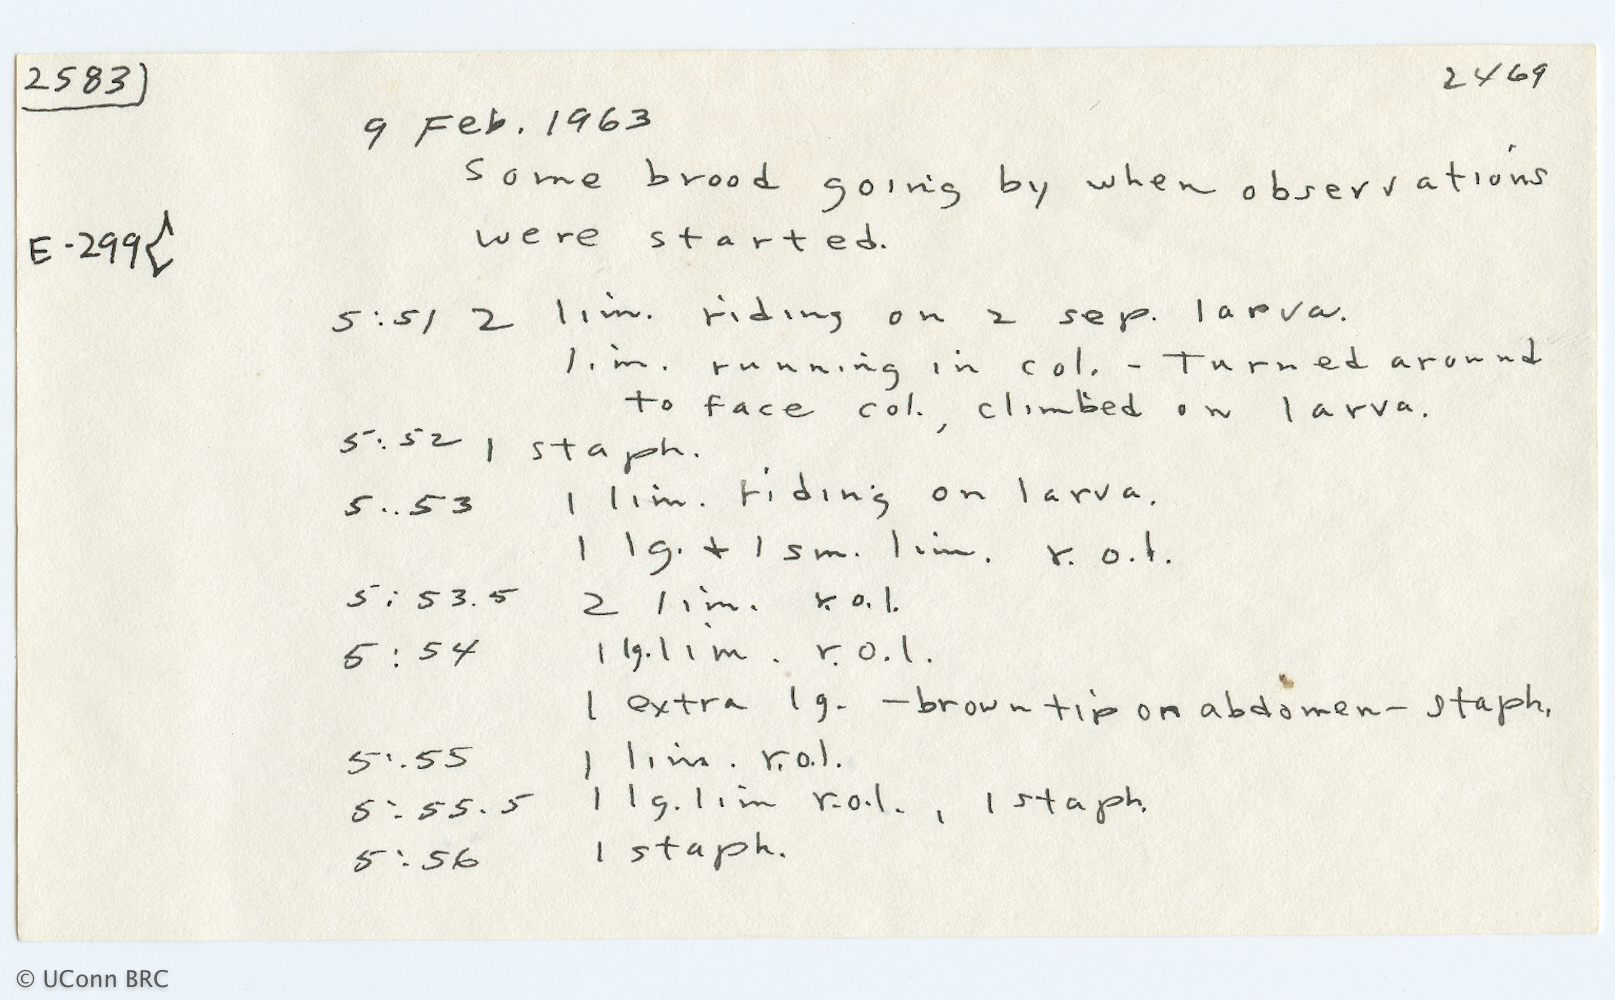 2583)
2469
9 Feb. 1963
Some brood going by when observations
were started.
E-299{
5:51 2 lim. riding on 2 sep. larva.
lim. running in col. - Turned around
to face col., climbed on larva.
5:52 1 staph.
5:53 1 lim. riding on larva.
1 lg. + 1 sm. lim. r.o.l.
5:53.5 2 lim. r.o.l.
5:54 1 lg. lim. r.o.l.
1 extra lg. - brown tip on abdomen - staph.
5:55 1 lim. r.o.l.
5:55.5 1 lg. lim r.o.l., 1 staph.
5:56 1 staph.
© UConn BRC